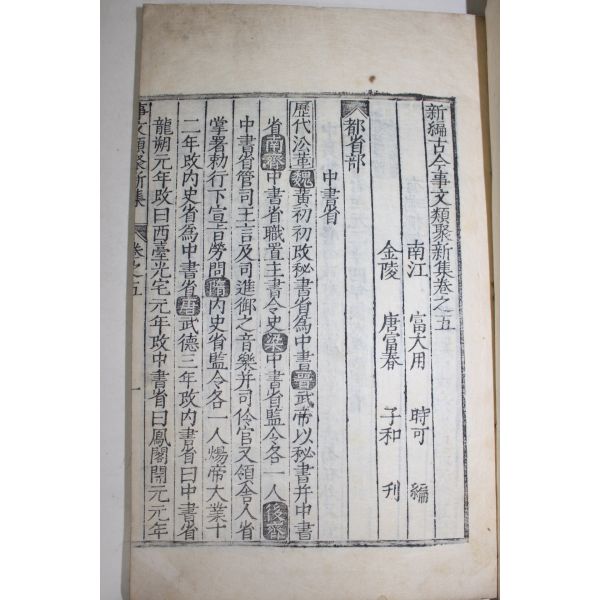 新編古今事文類聚新集卷之五
南江 富大用 時可 編
金陵 唐富春 子和 刊
都省部
中書省
歷代㳂革魏黃初初改秘書省為中書晉武帝以秘書并中書
省南齊中書省職置主書令史梁中書省監令各一人後齊
中書省管司王言及司進御之音樂并司伶官又領舍人省
掌署勑行下宣旨勞問隋內史省監令各一人煬帝大業十
二年改內史省為中書省唐武德三年改內書省曰中書省
龍朔元年改曰西臺光宅元年改中書省曰鳳閣開元元年
事文類聚新集 卷之五 一